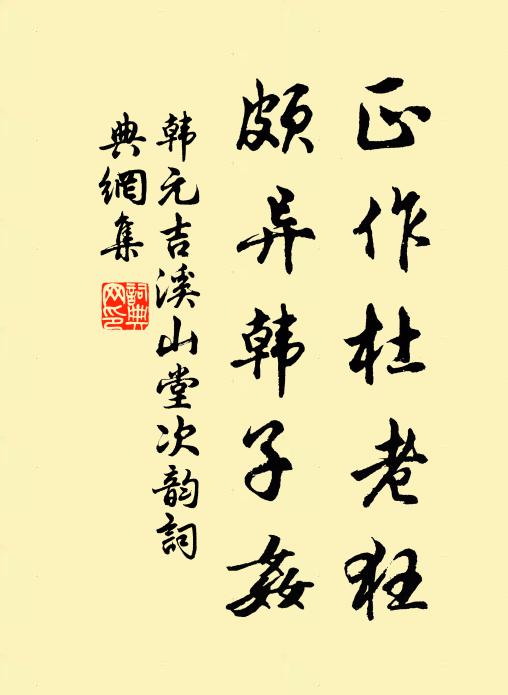 正作杜老狂
颇异韩子姦
韩元吉溪山堂次韵詞
典網集
詞典
网印